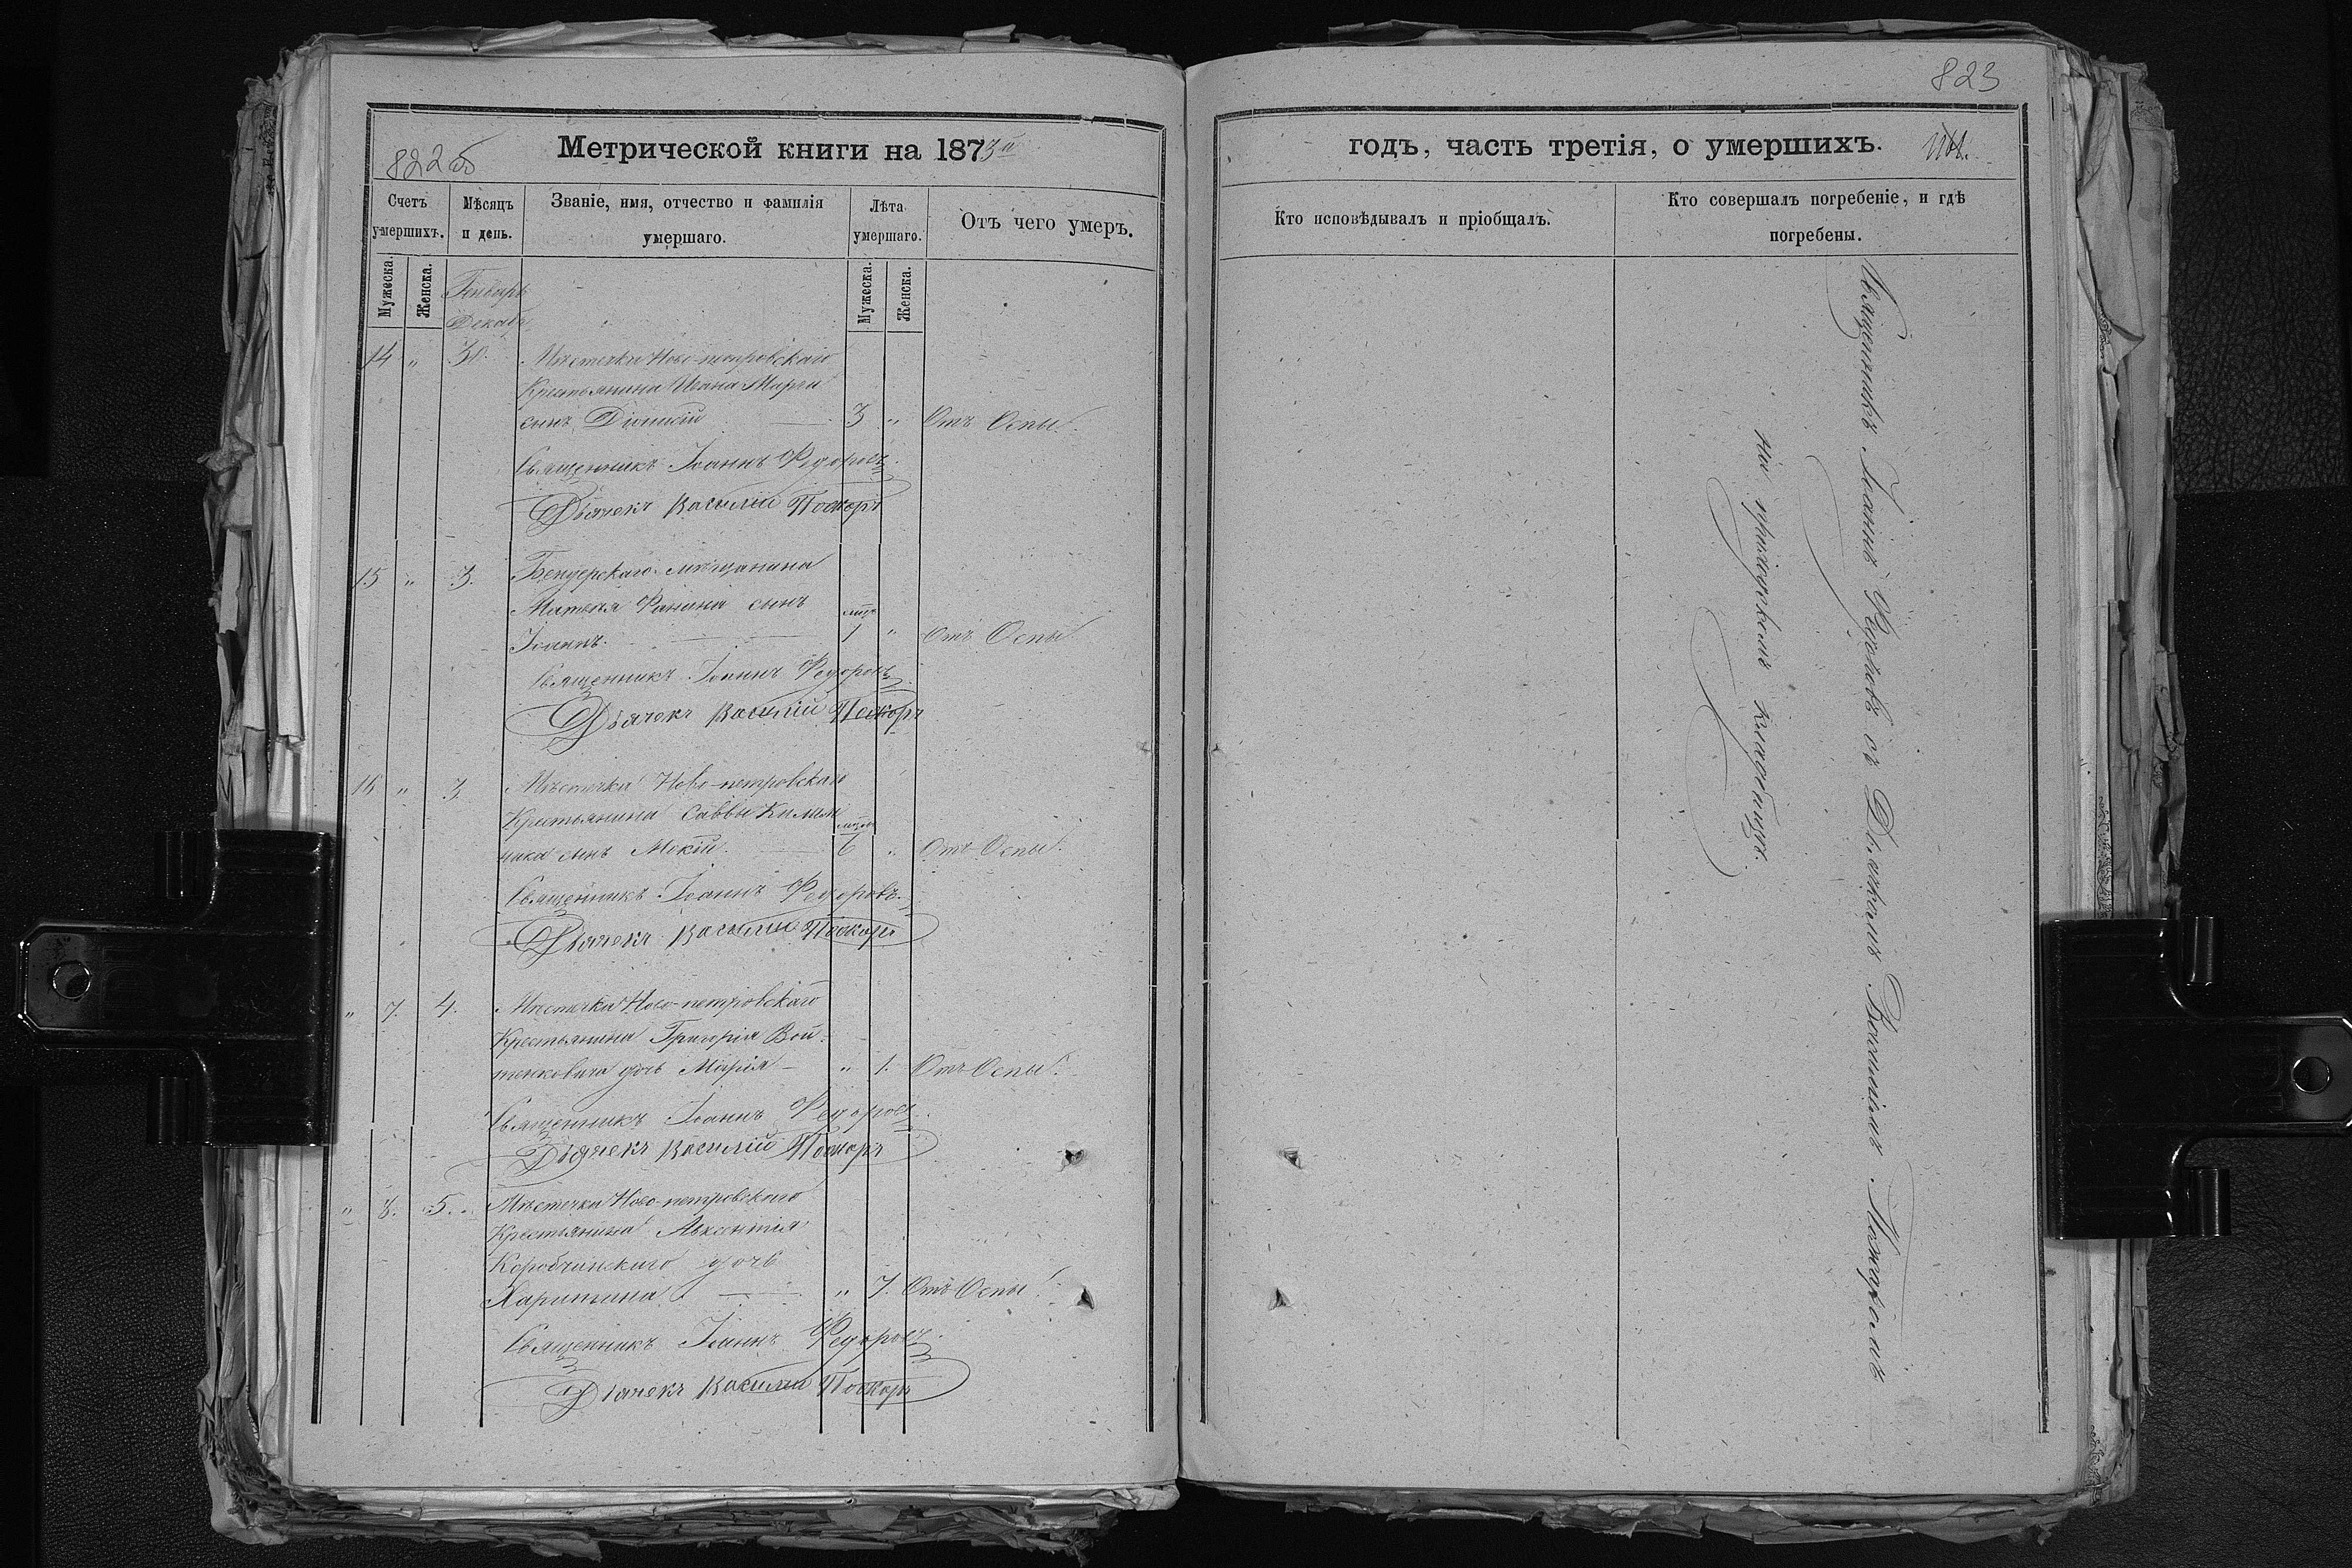 822 об
Метрической книги на 1873й
Счетъ умершихъ.
Мѣсяцъ и день.
Званіе, имя, отчество и фамилія умершаго.
Лѣта умершаго.
Отъ чего умеръ.
Мужеска. Женска.
Генварь
Декабр
Мужеска. Женска.
14 " 30. Мѣстечка Ново-петровскаго
Крестьянина Ивана
сынъ 3 " Отъ Оспы.
Священникъ Іоаннъ Федоровъ
Дьячекъ Василій
15 " 3. Бендерскаго мѣщанина
Матвѣя Фанина сынъ
Іоаннъ. 1 " Отъ Оспы.
Священникъ Іоаннъ Федоровъ
Дьячекъ Василій
16 " 3 Мѣстечка Ново-петровскаго
Крестьянина Саввы Килим
ника сынъ Мокій. 6 " Отъ Оспы.
Священникъ Іоаннъ Федоровъ
Дьячекъ Василій
" 7. 4. Мѣстечка Ново-петровскаго
Крестьянина Григорія Вой-
тенковича дочь Марія " 1. Отъ Оспы.
Священникъ Іоаннъ Федоровъ
Дьячекъ Василій
" 8. 5. Мѣстечка Ново-петровскаго
Крестьянина Авксентія
Коробчинскаго дочь
Харитина " 7. Отъ Оспы.
Священникъ Іоаннъ Федоровъ
Дьячекъ Василій
823
годъ, часть третія, о умершихъ.
Кто исповѣдывалъ и пріобщалъ.
Кто совершалъ погребеніе, и гдѣ погребены.
Священникъ Іоаннъ Федоровъ съ Дьячкомъ Василіемъ
на приходскомъ кладбищѣ.